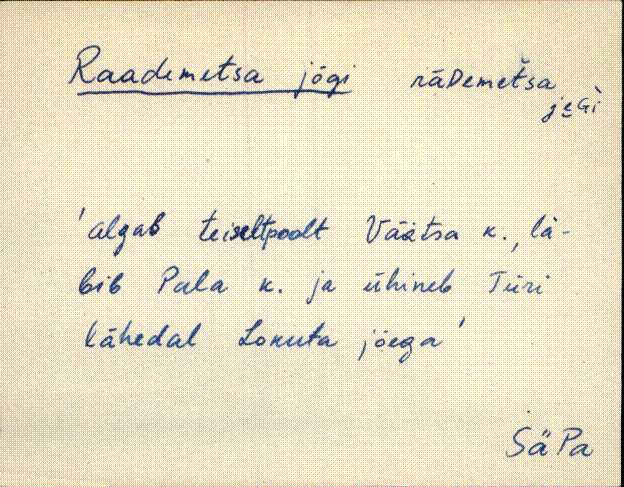 Raademetsa jõgi rāDemet̆sa
je̮Gì
'algab teiseltpoolt Väätsa k., lä-
bib Pala k. ja ühineb Türi
lähedal Lokuta jõega'
SäPa